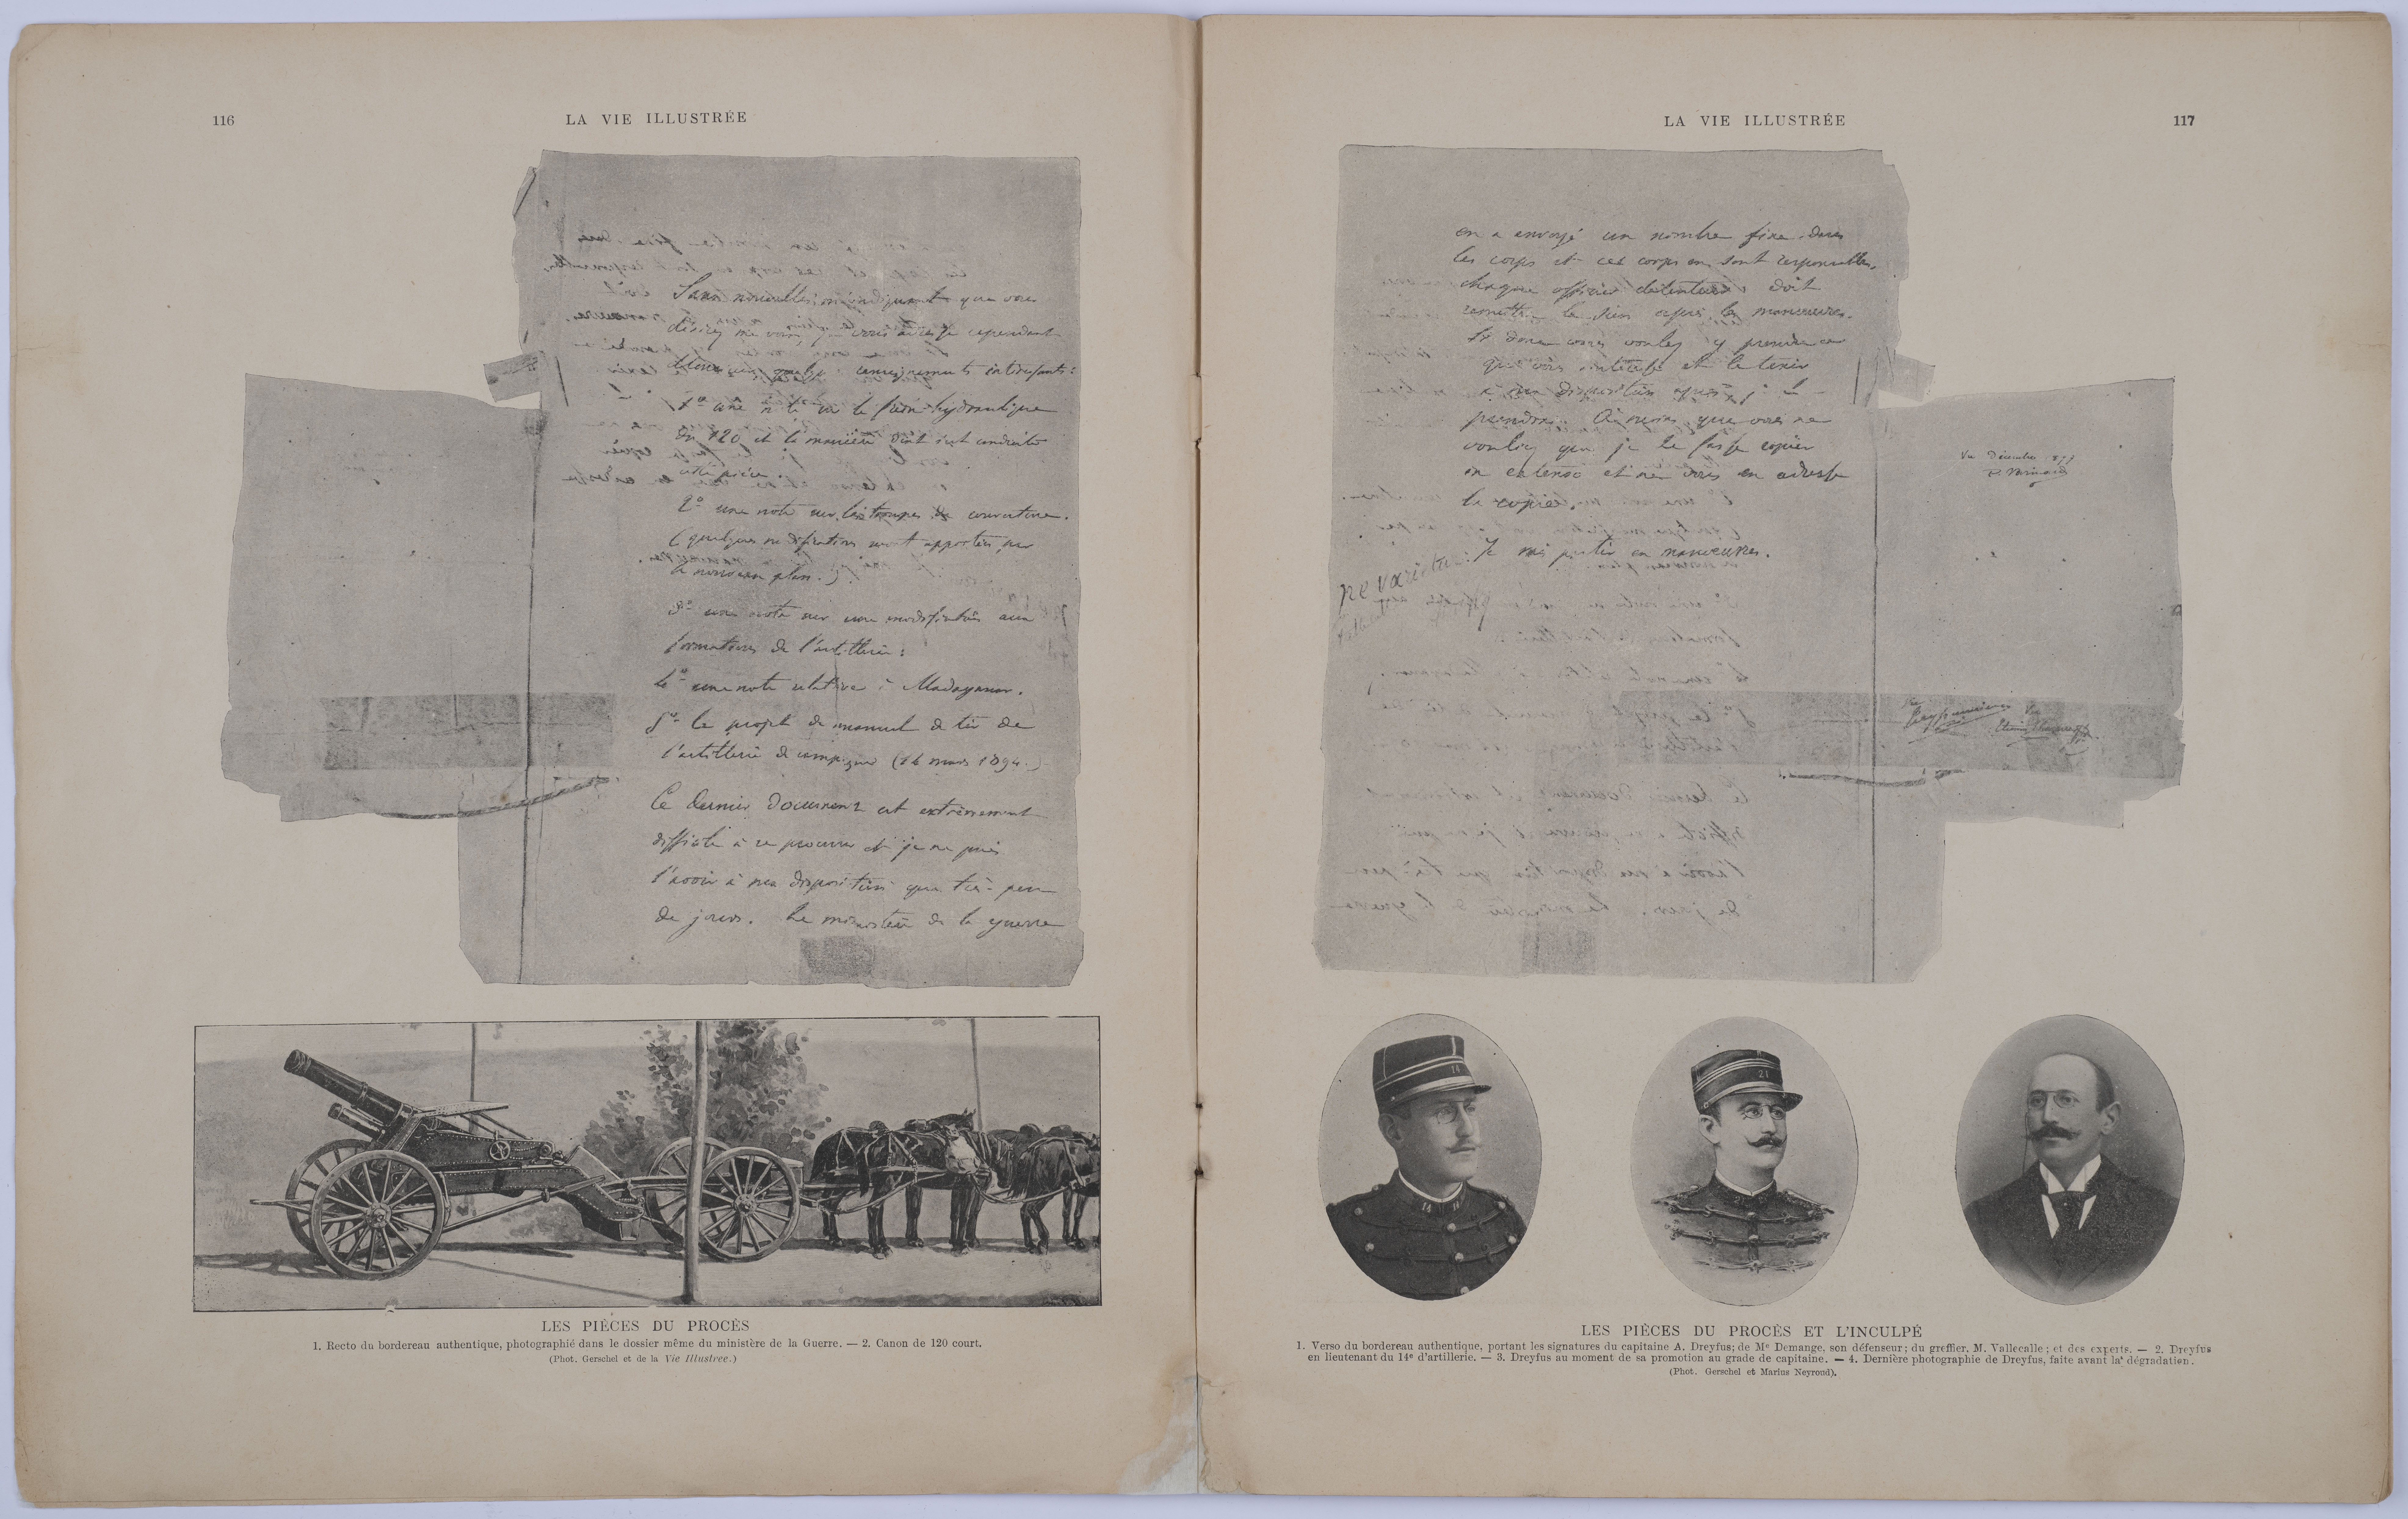 116
LA VIE ILLUSTRÉE
Sans nouvelles m'indiquant que vous
désirez me voir, je vous adresse cependant
Monsieur quelques renseignements intéressants :
1º une note sur le frein hydraulique
du 120 et la manière dont s'est conduite
cette pièce.
2º une note sur les troupes de couverture.
(quelques modifications seront apportées par
le nouveau plan.)
3º une note sur une modification aux
formations de l'artillerie :
4º une note relative à Madagascar.
5º le projet de manuel de tir de
l'artillerie de campagne (14 mars 1894.)
Ce dernier document est extrêmement
difficile à se procurer et je ne puis
l'avoir à ma disposition que très peu
de jours. Le ministère de la guerre
LES PIÈCES DU PROCÈS
1. Recto du bordereau authentique, photographié dans le dossier même du ministère de la Guerre. — 2. Canon de 120 court.
(Phot. Gerschel et de la Vie Illustree.)
LA VIE ILLUSTRÉE
117
en a envoyé un nombre fixe dans
les corps et ces corps en sont responsables,
chaque officier détenteur doit
remettre le sien après les manœuvres.
Si donc vous voulez y prendre ce
qui vous intéresse et le tenir
à ma disposition après, je le
prendrai. À moins que vous ne
vouliez que je le fasse copier
in extenso et ne vous en adresse
la copie.
ne varietur : Je vais partir en manœuvres.
Vu Décembre
Vu
Vu
14
14
21
LES PIÈCES DU PROCÈS ET L'INCULPÉ
1. Verso du bordereau authentique, portant les signatures du capitaine A. Dreyfus; de Me Demange, son défenseur; du greffier, M. Vallecalle; et des experts. — 2. Dreyfus
en lieutenant du 14e d'artillerie. — 3. Dreyfus au moment de sa promotion au grade de capitaine. — 4. Dernière photographie de Dreyfus, faite avant la dégradation.
(Phot. Gerschel et Marius Neyroud).